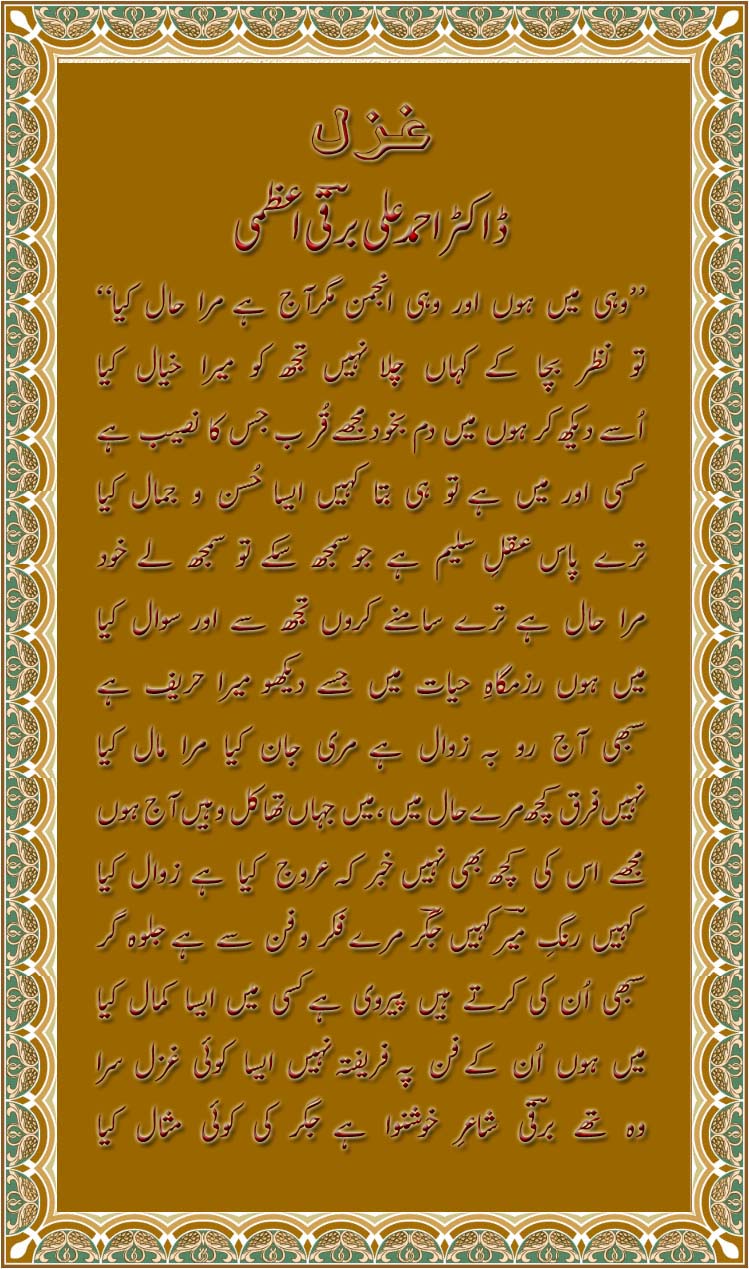 غزل
ڈاکٹر احمد علی برقؔی اعظمی
’’وہی میں ہوں اور وہی انجمن مگر آج ہے مرا حال کیا‘‘
تو نظر بچا کے کہاں چلا نہیں تجھ کو میرا خیال کیا
اُسے دیکھ کر ہوں میں دم بخود مجھے قُرب جس کا نصیب ہے
کسی اور میں ہے تو ہی بتا کہیں ایسا حُسن و جمال کیا
ترے پاس عقلِ سلیم ہے جو سمجھ سکے تو سمجھ لے خود
مرا حال ہے ترے سامنے کروں تجھ سے اور سوال کیا
میں ہوں رزمگاہِ حیات میں جسے دیکھو میرا حریف ہے
سبھی آج رو بہ زوال ہے مری جان کیا مرا مال کیا
نہیں فرق کچھ مرے حال میں ، میں جہاں تھا کل وہیں آج ہوں
مجھے اس کی کچھ بھی نہیں خبر کہ عروج کیا ہے زوال کیا
کہیں رنگِ میرؔ کہیں جگرؔ مرے فکر و فن سے ہے جلوہ گر
سبھی اُن کی کرتے ہیں پیروی ہے کسی میں ایسا کمال کیا
میں ہوں اُن کے فن پہ فریفتہ نہیں ایسا کوئی غزل سرا
وہ تھے برقؔی شاعرِ خوشنوا ہے جگر کی کوئی مثال کیا